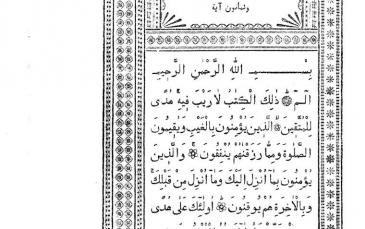 وثمانون آية
بِسْــــــمِ اللهِ الرَّحْمٰنِ الرَّحِيمِ
الٓمٓ ۝ ذٰلِكَ الْكِتٰبُ لَا رَيْبَ فِيهِ هُدًى
لِلْمُتَّقِينَ ۝ الَّذِينَ يُؤْمِنُونَ بِالْغَيْبِ وَيُقِيمُونَ
الصَّلٰوةَ وَمِمَّا رَزَقْنٰهُمْ يُنْفِقُونَ ۝ وَالَّذِينَ
يُؤْمِنُونَ بِمَآ اُنْزِلَ اِلَيْكَ وَمَآ اُنْزِلَ مِنْ قَبْلِكَ
وَبِالْاٰخِرَةِ هُمْ يُوقِنُونَ ۝ اُولٰٓئِكَ عَلٰى هُدًى